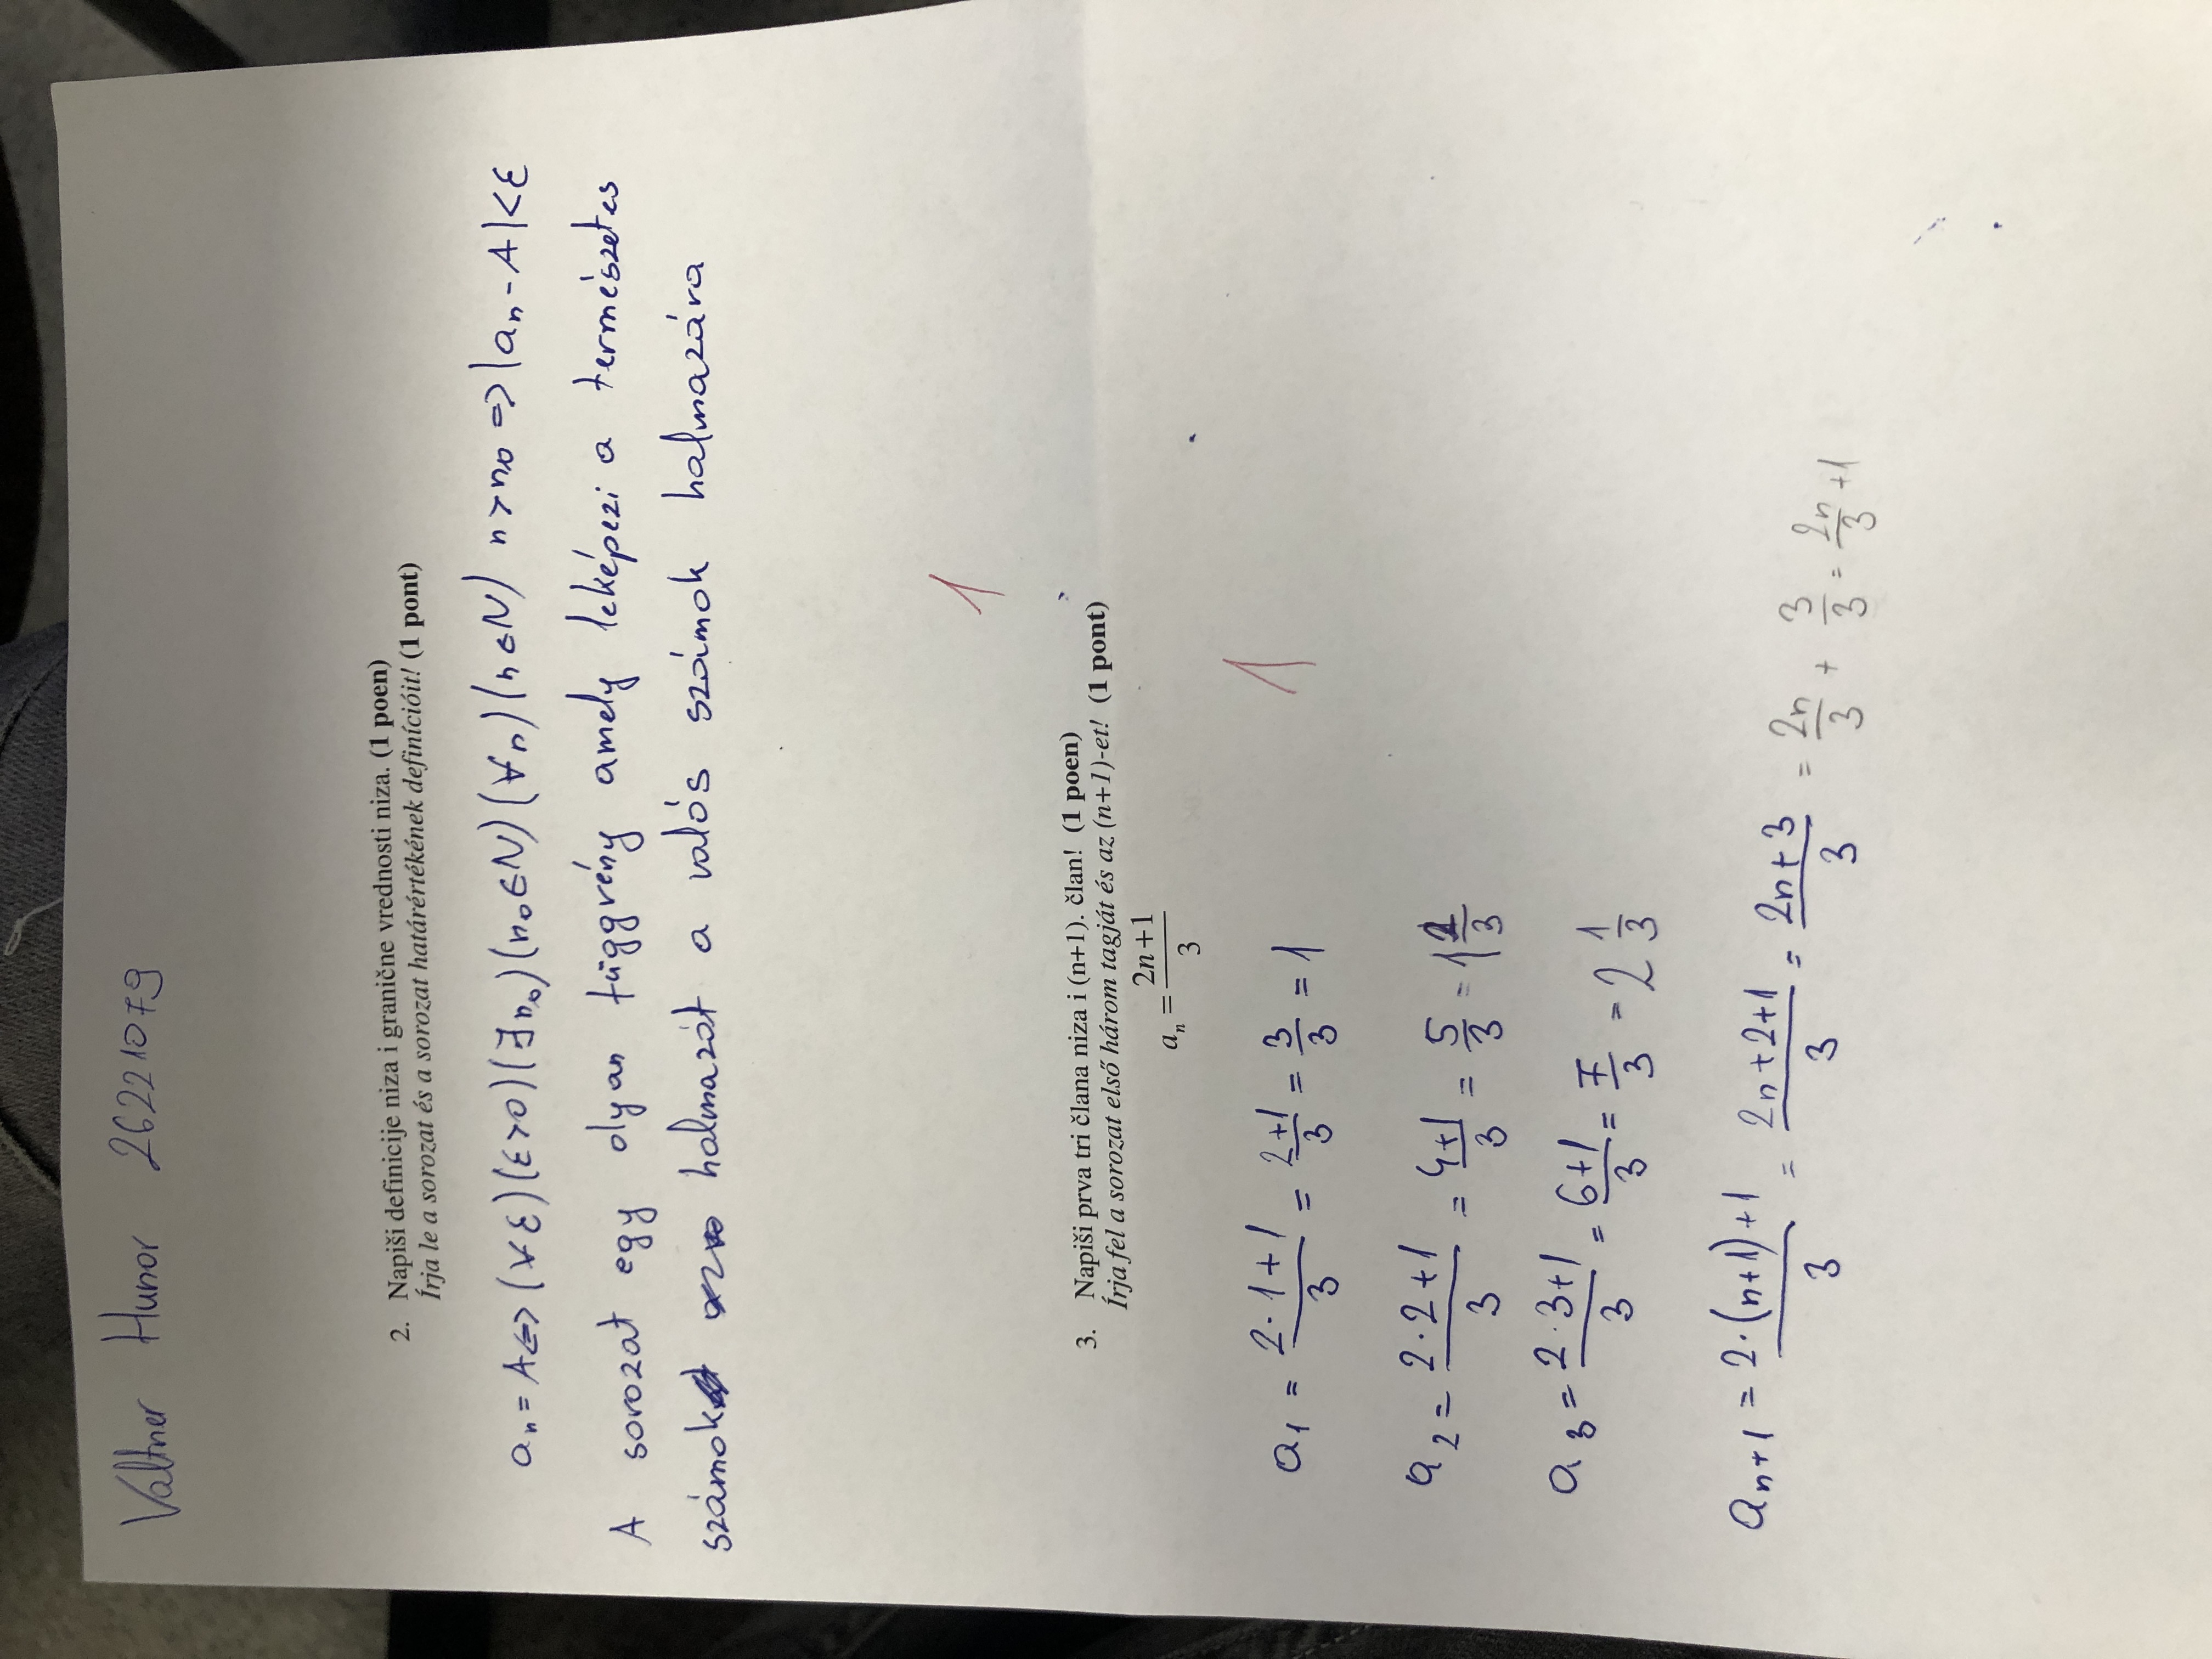 Valtner Hunor 26221079
2. Napiši definicije niza i granične vrednosti niza. (1 poen)
Írja le a sorozat és a sorozat határértékének definícióit! (1 pont)
aₙ = A <=> (∀ε)(ε>0)(∃n₀)(n₀∈N)(∀n)(n∈N) n>n₀ => |aₙ - A|<ε
A sorozat egy olyan függvény amely leképezi a természetes
számok halmazát a valós számok halmazára
1
3. Napiši prva tri člana niza i (n+1). član! (1 poen)
Írja fel a sorozat első három tagját és az (n+1)-et! (1 pont)
aₙ = (2n+1)/3
1
a₁ = (2·1+1)/3 = (2+1)/3 = 3/3 = 1
a₂ = (2·2+1)/3 = (4+1)/3 = 5/3 = 1 2/3
a₃ = (2·3+1)/3 = (6+1)/3 = 7/3 = 2 1/3
aₙ₊₁ = (2·(n+1)+1)/3 = (2n+2+1)/3 = (2n+3)/3 = 2n/3 + 3/3 = 2n/3 + 1